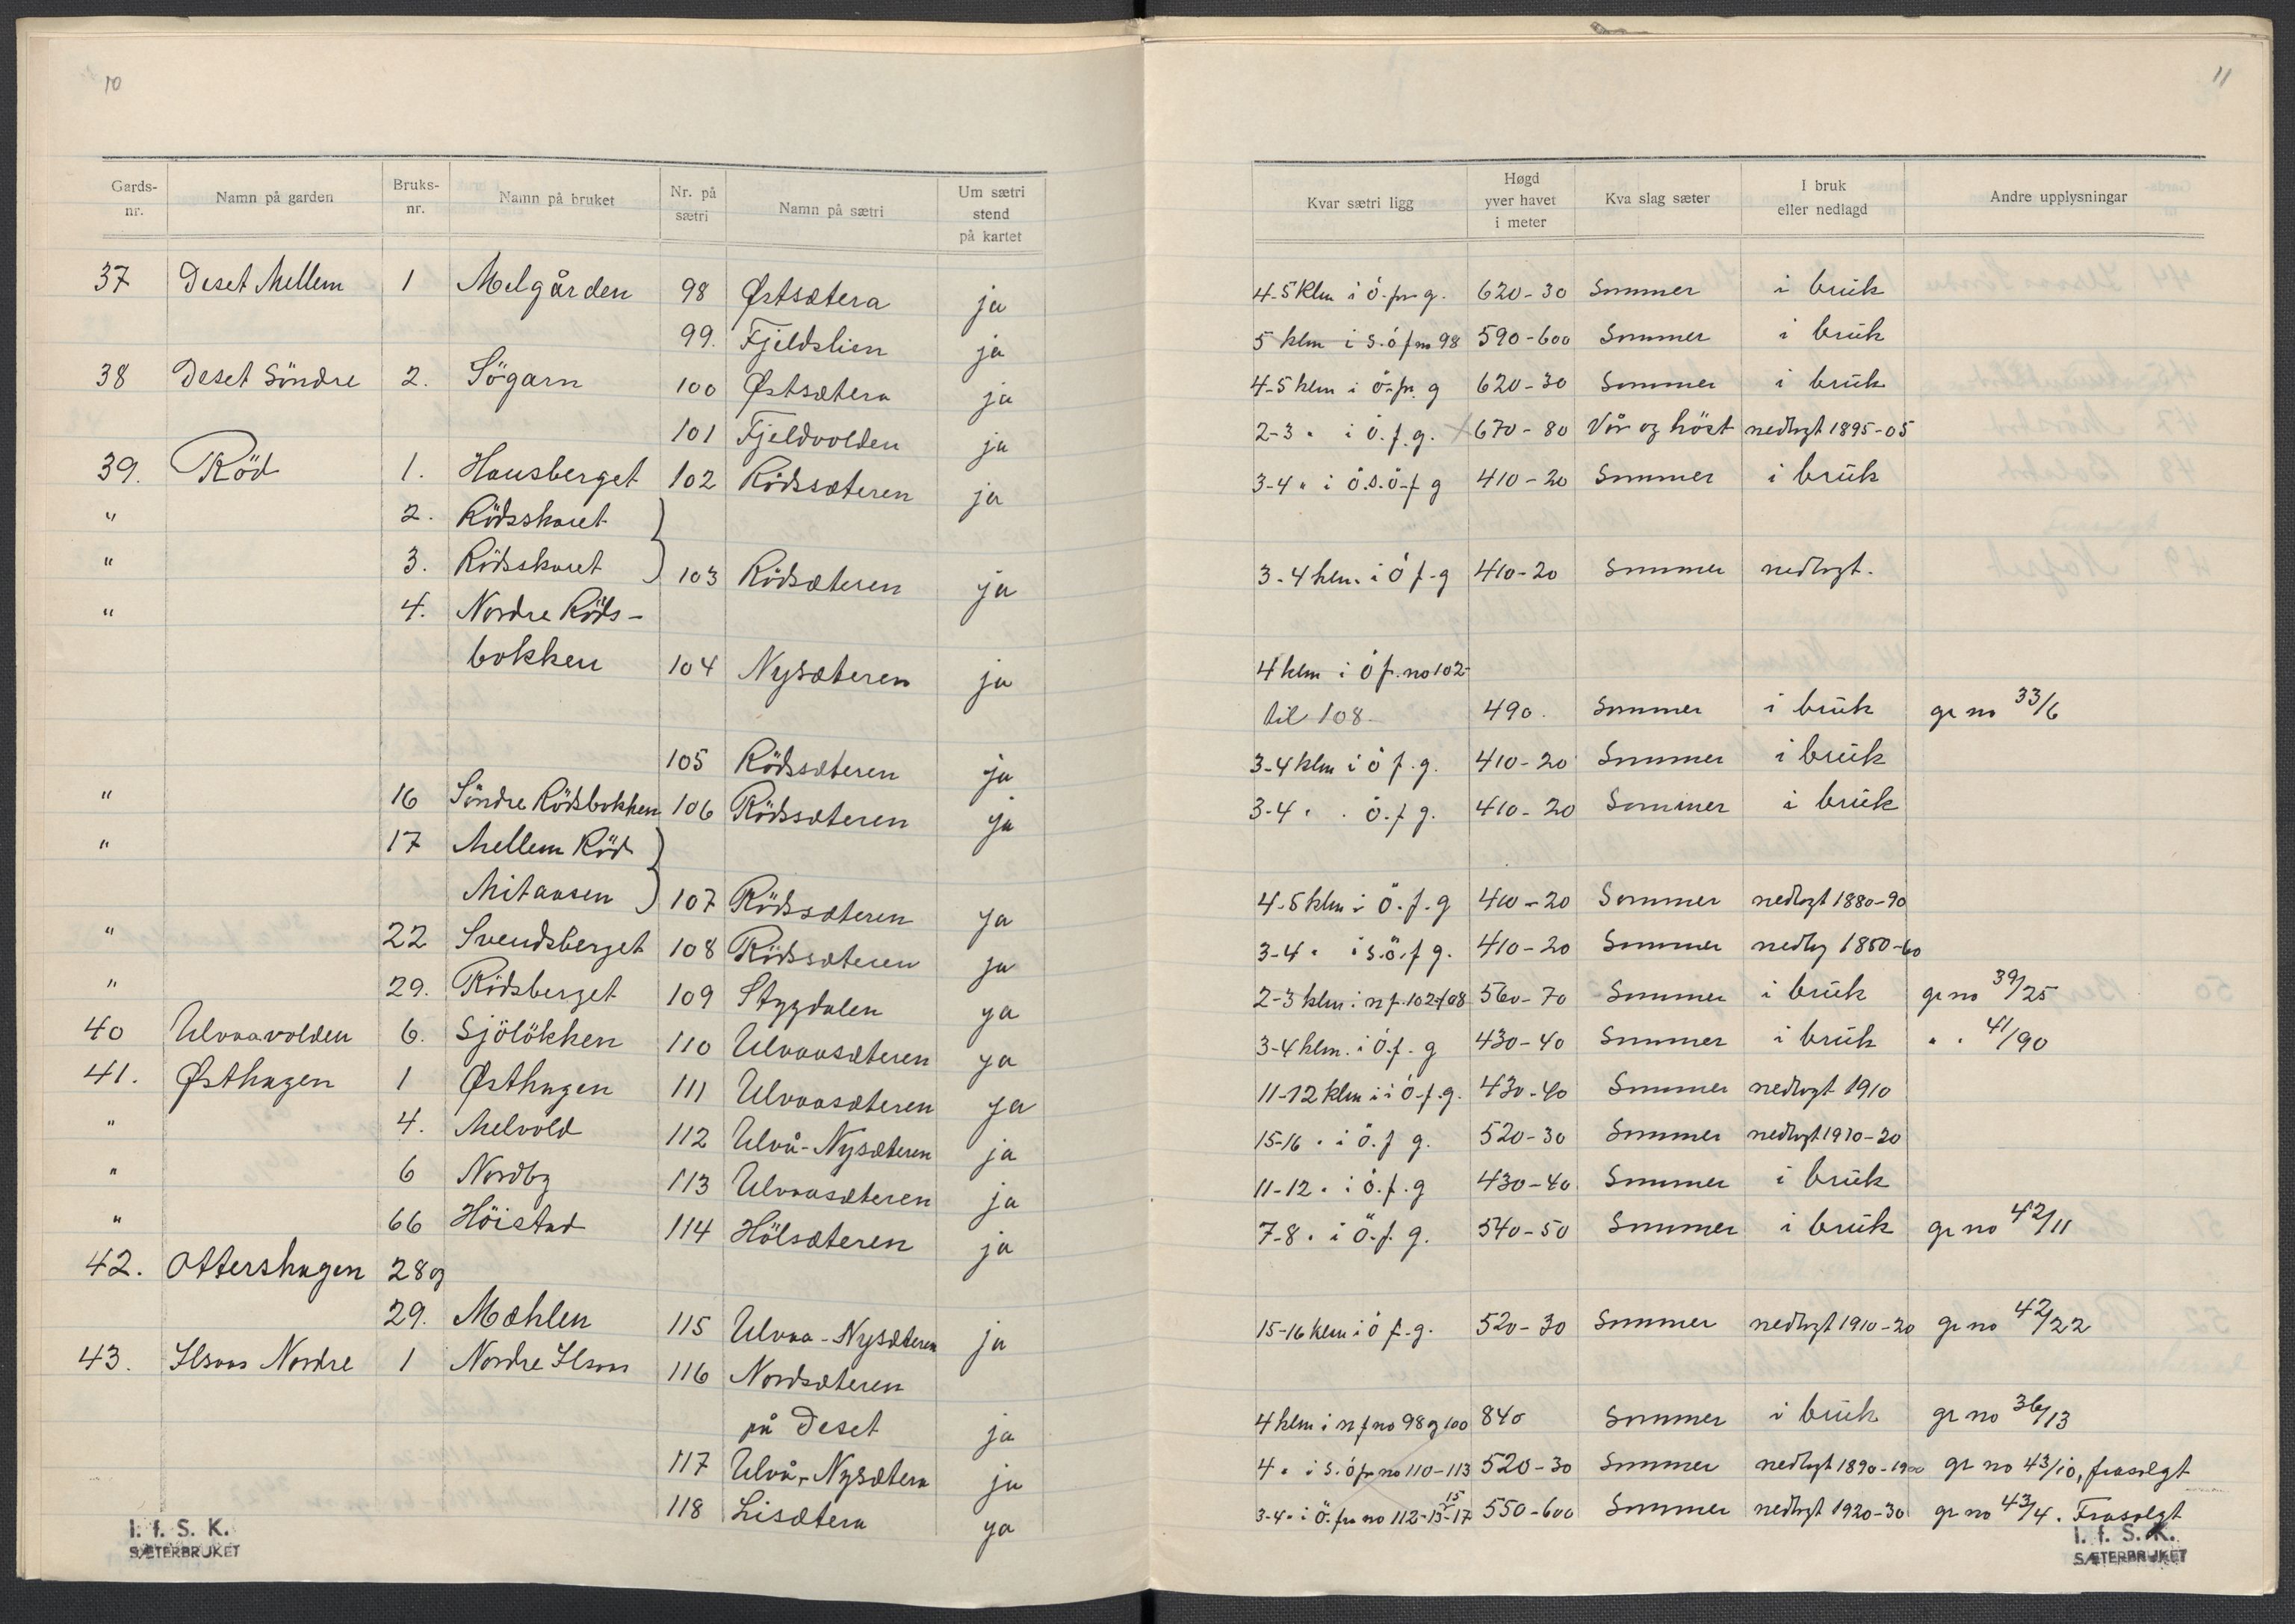 10
Gards-nr. Namn på garden Bruks-nr. Namn på bruket Nr. på sætri Namn på sætri Um sætri stend på kartet
37 Deset Mellem 1 Melgården 98 Østsætera ja
99. Fjeldslien ja
38 Deset Söndre 2. Sögarn 100 Østsætera ja
101 Fjeldvolden ja
39. Röd 1. Hausberget 102 Rödssæteren ja
" 2. Rödsskaret
" 3. Rödsskaret 103 Rödsæteren ja
" 4. Nordre Röds-
bokken 104 Nysæteren ja
105 Rödssæteren ja
" 16 Söndre Rödsbokken 106 Rödssæteren ja
" 17 Mellem Röd
Mitausen 107 Rödssæteren ja
" 22 Svendsberget 108 Rödssæteren ja
" 29. Rödsberget 109 Stygdalen ja
40 Ulvaavolden 6. Sjölökken 110 Ulvaasæteren ja
41. Østhagen 1 Østhagen 111 Ulvaasæteren ja
" 4. Melvold 112 Ulvå-Nysæteren ja
" 6 Nordby 113 Ulvaasæteren ja
" 66 Höistad 114 Hölsæteren ja
42. Ottershagen 28 og
29. Mæhlen 115 Ulvaa-Nysæteren ja
43. Ilsaas Nordre 1 Nordre Ilsaas 116 Nordsæteren
på Deset ja
117 Ulvå-Nysætera ja
118 Lisætera ja
I. f. S. K.
SÆTERBRUKET
11
Kvar sætri ligg Høgd yver havet i meter Kva slag sæter I bruk eller nedlagd Andre upplysningar
4-5 klm i ö. fr. g. 620-30 Sommer i brük
5 klm i s.ö f no 98 590-600 Sommer i brük
4-5 klm i ö. fr. g 620-30 Sommer i brük
2-3 " i ö. f. g. 670-80 Vår og höst nedlagt 1895-05
3-4 " i ö.s.ö. f g 410-20 Sommer i brük
3-4 klm. i ö f. g 410-20 Sommer nedlagt.
4 klm i ö f. no 102-
til 108. 490. Sommer i brük gr no 33/6
3-4 klm i ö f. g. 410-20 Sommer i brük
3-4 " " ö. f g. 410-20 Sommer i brük
4-5 klm i ö. f. g 410-20 Sommer nedlagt 1880-90
3-4 " i s.ö. f g. 410-20 Sommer nedlg 1850-60
2-3 klm i n f. 102-108 560-70 Sommer i brük gr no 39/25
3-4 klm. i ö. f. g 430-40 Sommer i brük " " 41/90
11-12 klm i i ö. f. g. 430-40 Sommer nedlagt 1910
15-16 " i ö. f g. 520-30 Sommer nedlagt 1910-20
11-12 " i ö. f. g 430-40 Sommer i brük
7-8 " i ö. f. g. 540-50 Sommer i brük gr no 42/11
15-16 klm i ö f. g. 520-30 Sommer nedlagt 1910-20 gr no 42/22
4 klm i n f no 98 og 100 840 Sommer i brük gr no 36/13
4 " i s.ö fr no 110-113 520-30 Sommer nedlagt 1890-1900 gr no 43/10, frasolgt
3-4 " i ö. fra no 112-15-17 550-600 Sommer nedlagt 1920-30 gr no 43/4. Frasolgt
I. f. S. K.
SÆTERBRUKET